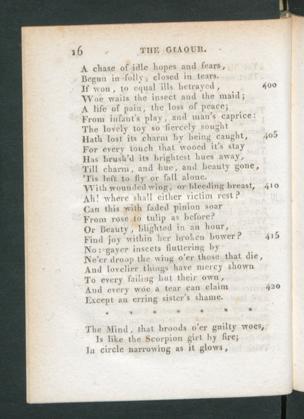 16 THE GIAOUR.
A chase of idle hopes and fears,
Begun in folly, closed in tears.
If won, to equal ills betrayed, 400
Woe waits the insect and the maid;
A life of pain, the loss of peace;
From infant's play, and man's caprice:
The lovely toy so fiercely sought
Hath lost its charm by being caught, 405
For every touch that wooed it's stay
Has brush'd its brightest hues away,
Till charm, and hue, and beauty gone,
'Tis left to fly or fall alone.
With wounded wing, or bleeding breast, 410
Ah! where shall either victim rest?
Can this with faded pinion soar
From rose to tulip as before?
Or Beauty, blighted in an hour,
Find joy within her broken bower? 415
No: gayer insects fluttering by
Ne'er droop the wing o'er those that die,
And lovelier things have mercy shown
To every failing but their own,
And every woe a tear can claim 420
Except an erring sister's shame.
* * * * * * *
The Mind, that broods o'er guilty woes,
Is like the Scorpion girt by fire;
In circle narrowing as it glows,